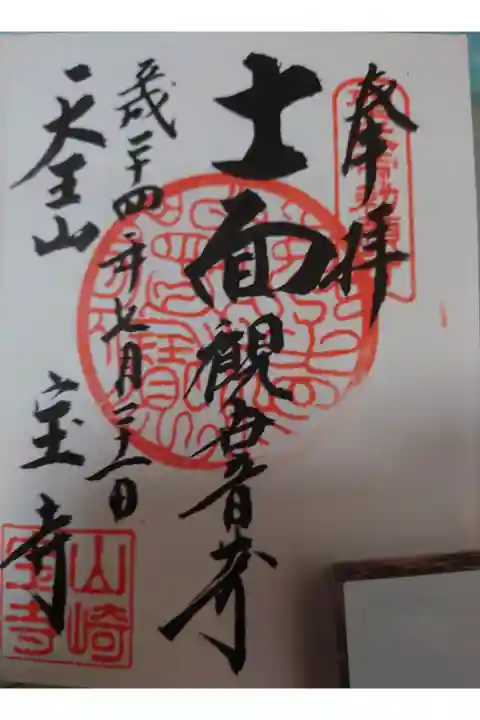 奉拝
十一面觀世音
平成二十四年七月三十一日
天王山 宝寺
山崎
宝寺